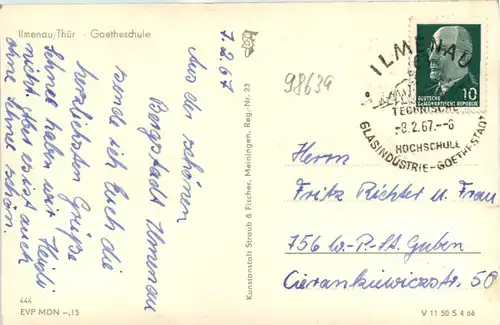 Ilmenau/Thür - Goetheschule
7.2.67
Aus der schönen
Bergstadt Ilmenau
sende ich Euch die
herzlichsten Grüße
Schnee haben wir
nicht. Aber es ist auch
ohne Schnee schön.
444
EVP MDN -,15
Kunstanstalt Straub & Fischer, Meiningen, Reg.-Nr. 23
98639
ILMENAU
DEUTSCHE
DEMOKRATISCHE REPUBLIK
10
TECHNISCHE
-8.2.67.--6
HOCHSCHULE
GLASINDUSTRIE-GOETHESTADT
Herrn
Fritz Richter u. Frau
756 W.-P.-St. Guben
Cierankiewiczstr. 50
V 11 50 S 4 66